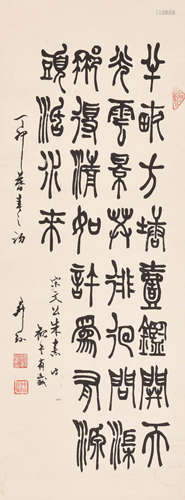 半畝方塘壹鑑開天
光雲景共徘徊問渠
那得清如許爲有源
頭活水來
宋文公朱熹
觀書有感
丁卯暮春之初